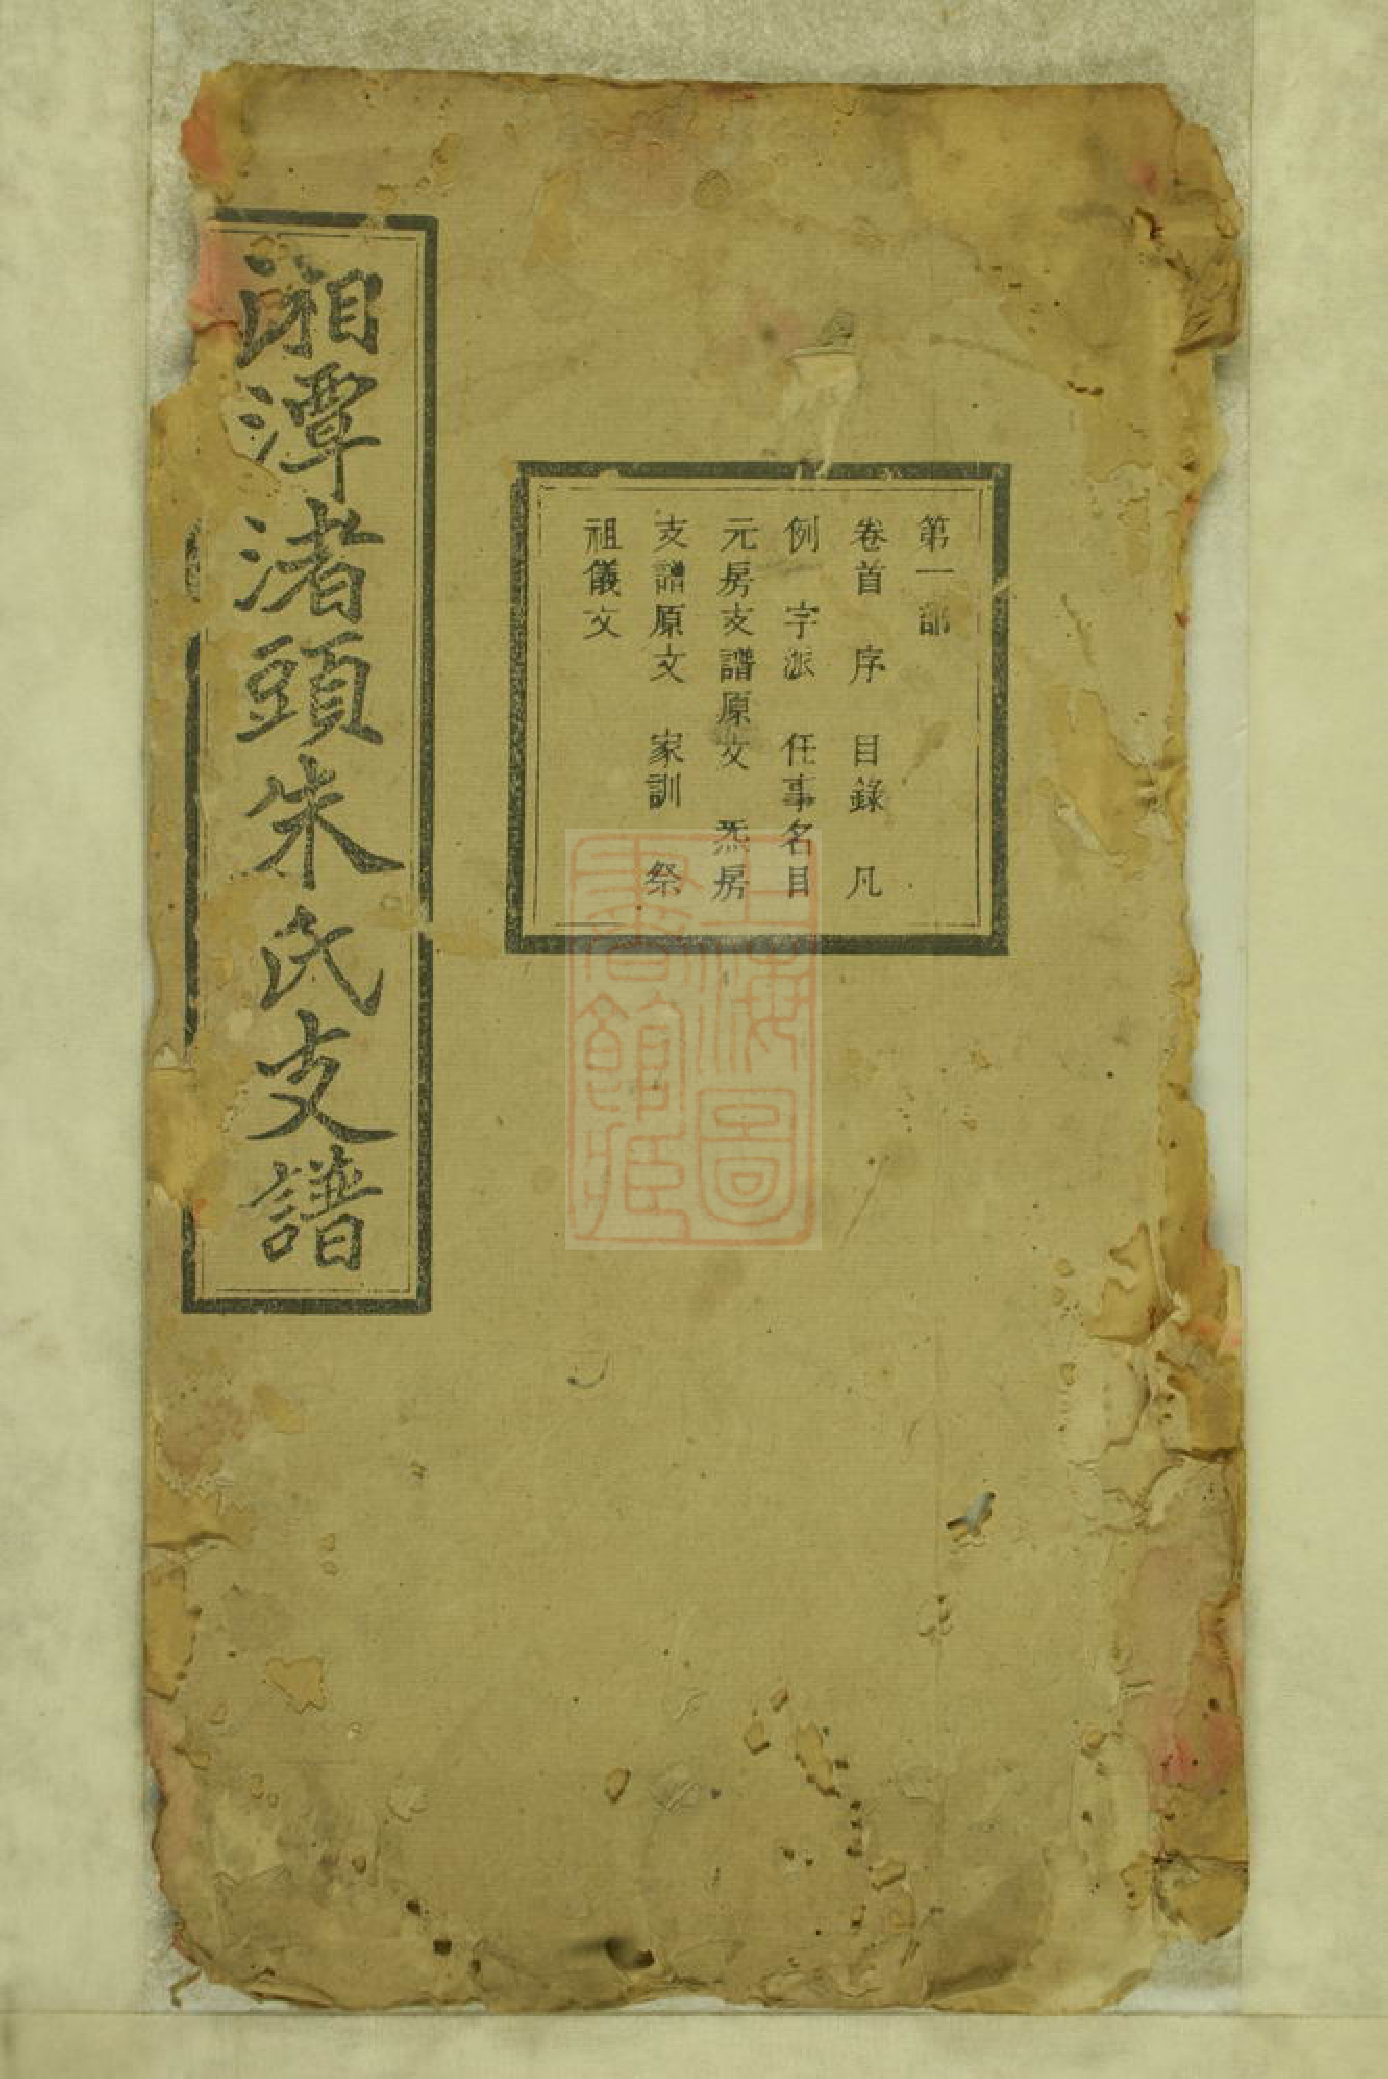 湘潭渚頭朱氏支譜
第一部
卷首　序　目錄　凡
例　字派　任事名目
元房支譜原文　炁房
支譜原文　家訓　祭
祖儀文
上海圖
書館藏